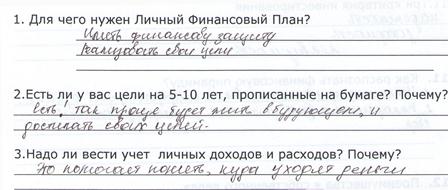 1. Для чего нужен Личный Финансовый План?
Иметь финансову защиту
Реализовать свои цели
2.Есть ли у вас цели на 5-10 лет, прописанные на бумаге? Почему?
Есть! так проще будет жить в будующем, и
достигать своих целей.
3.Надо ли вести учет личных доходов и расходов? Почему?
Это помогает понять, куда уходят деньги